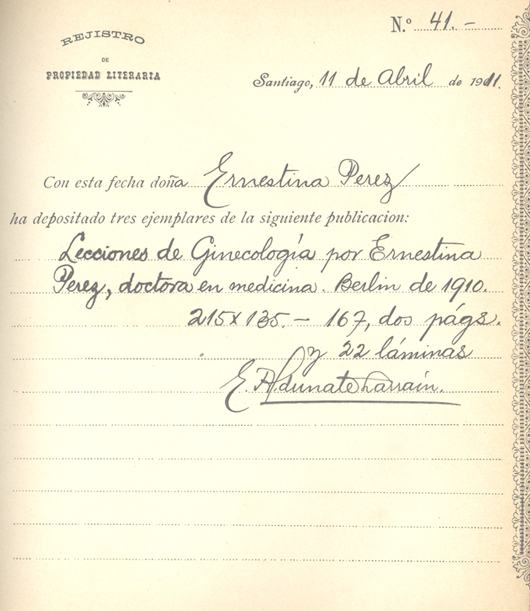 N.º 41.-
REJISTRO
DE
PROPIEDAD LITERARIA
Santiago, 11 de Abril de 1911.
Con esta fecha doña Ernestina Perez
ha depositado tres ejemplares de la siguiente publicacion:
Lecciones de Ginecología por Ernestina
Perez, doctora en medicina. Berlin de 1910.
215 x 135. - 167, dos págs.
y 22 láminas
E. Aldunate Larraín.